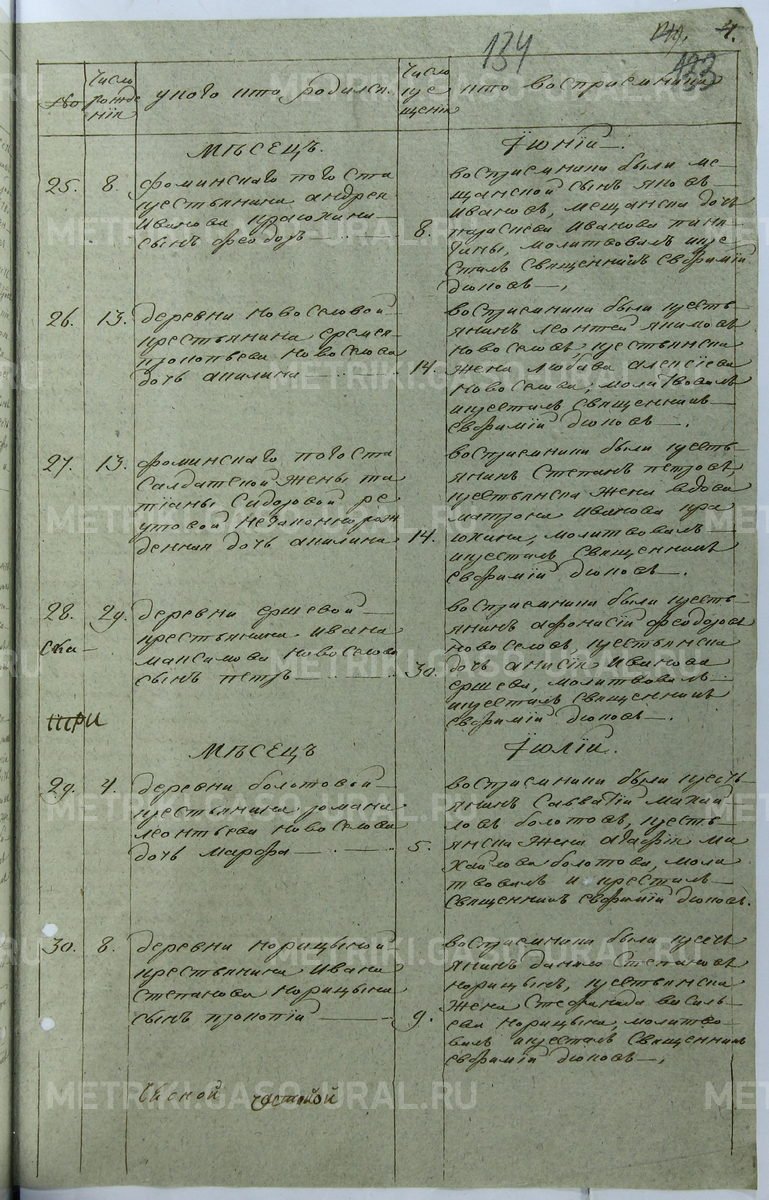 134
133
4.
№
Число рожде нія
у кого кто родился.
Число кре щенія
кто восприемники
Мѣсецъ
Іюній
25. 8.
фоминскаго погоста
крестьянина андрея
иванова
сынъ феодоръ
8.
восприемники были ме
щанской сынъ яковъ
ивановъ, мещанска дочь
параскева иванова
молитвовалъ и кре
стилъ священникъ евфимій
26. 13.
деревни новоселовой
крестьянина еремея
прокопьева новоселова
дочь акилина
14.
восприемники были кресть
янинъ леонтей якимовъ
новоселовъ, крестьянска
жена любава алексіева
новоселова, молитвовалъ
и крестилъ священникъ
евфимій
27. 13.
фоминскаго погоста
салдатской жены та
тіаны сидоровой ре
утовой незаконнорож
денная дочь акилина
14.
восприемники были кресть
янинъ степанъ петровъ,
крестьянска жена вдова
матрона иванова
молитвовалъ
и крестилъ священникъ
евфимій
28. 29.
деревни ершевой
крестьянина ивана
максимова новоселова
сынъ петръ
30.
восприемники были кресть
янинъ афонасій феодоровъ
новоселовъ, крестьянска
дочь анисія иванова
ершева, молитвовалъ
и крестилъ священникъ
евфимій
Мѣсецъ
Іюлій.
29. 4.
деревни болотовой
крестьянина романа
леонтьева новоселова
дочь марфа
5.
восприемники были кресть
янинъ савватій михай
ловъ болотовъ, кресть
янска жена агафія ми
хайлова болотова, моли
твовалъ и крестилъ
священникъ евфимій
30. 8.
деревни корицыной
крестьянина ивана
степанова корицына
сынъ прокопій
9.
восприемники были кресть
янинъ данило степановъ
корицынъ, крестьянска
жена стефанида василь
ева корицына, молитво
валъ и крестилъ священникъ
евфимій
METRIKI.GASO-URAL.RU